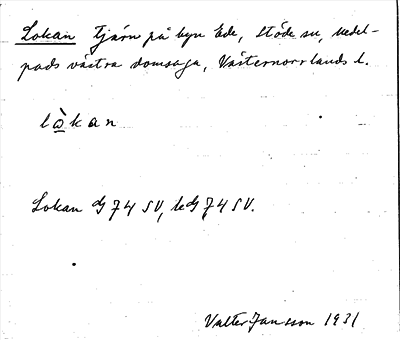 Lokan Tjärn på byn Ede, Stöde sn, Medel-
pads västra domsaga, Västernorrlands l.
lò̲kan
Lokan dG 74 SV, ke G 74 SV.
Valter Jansson 1931